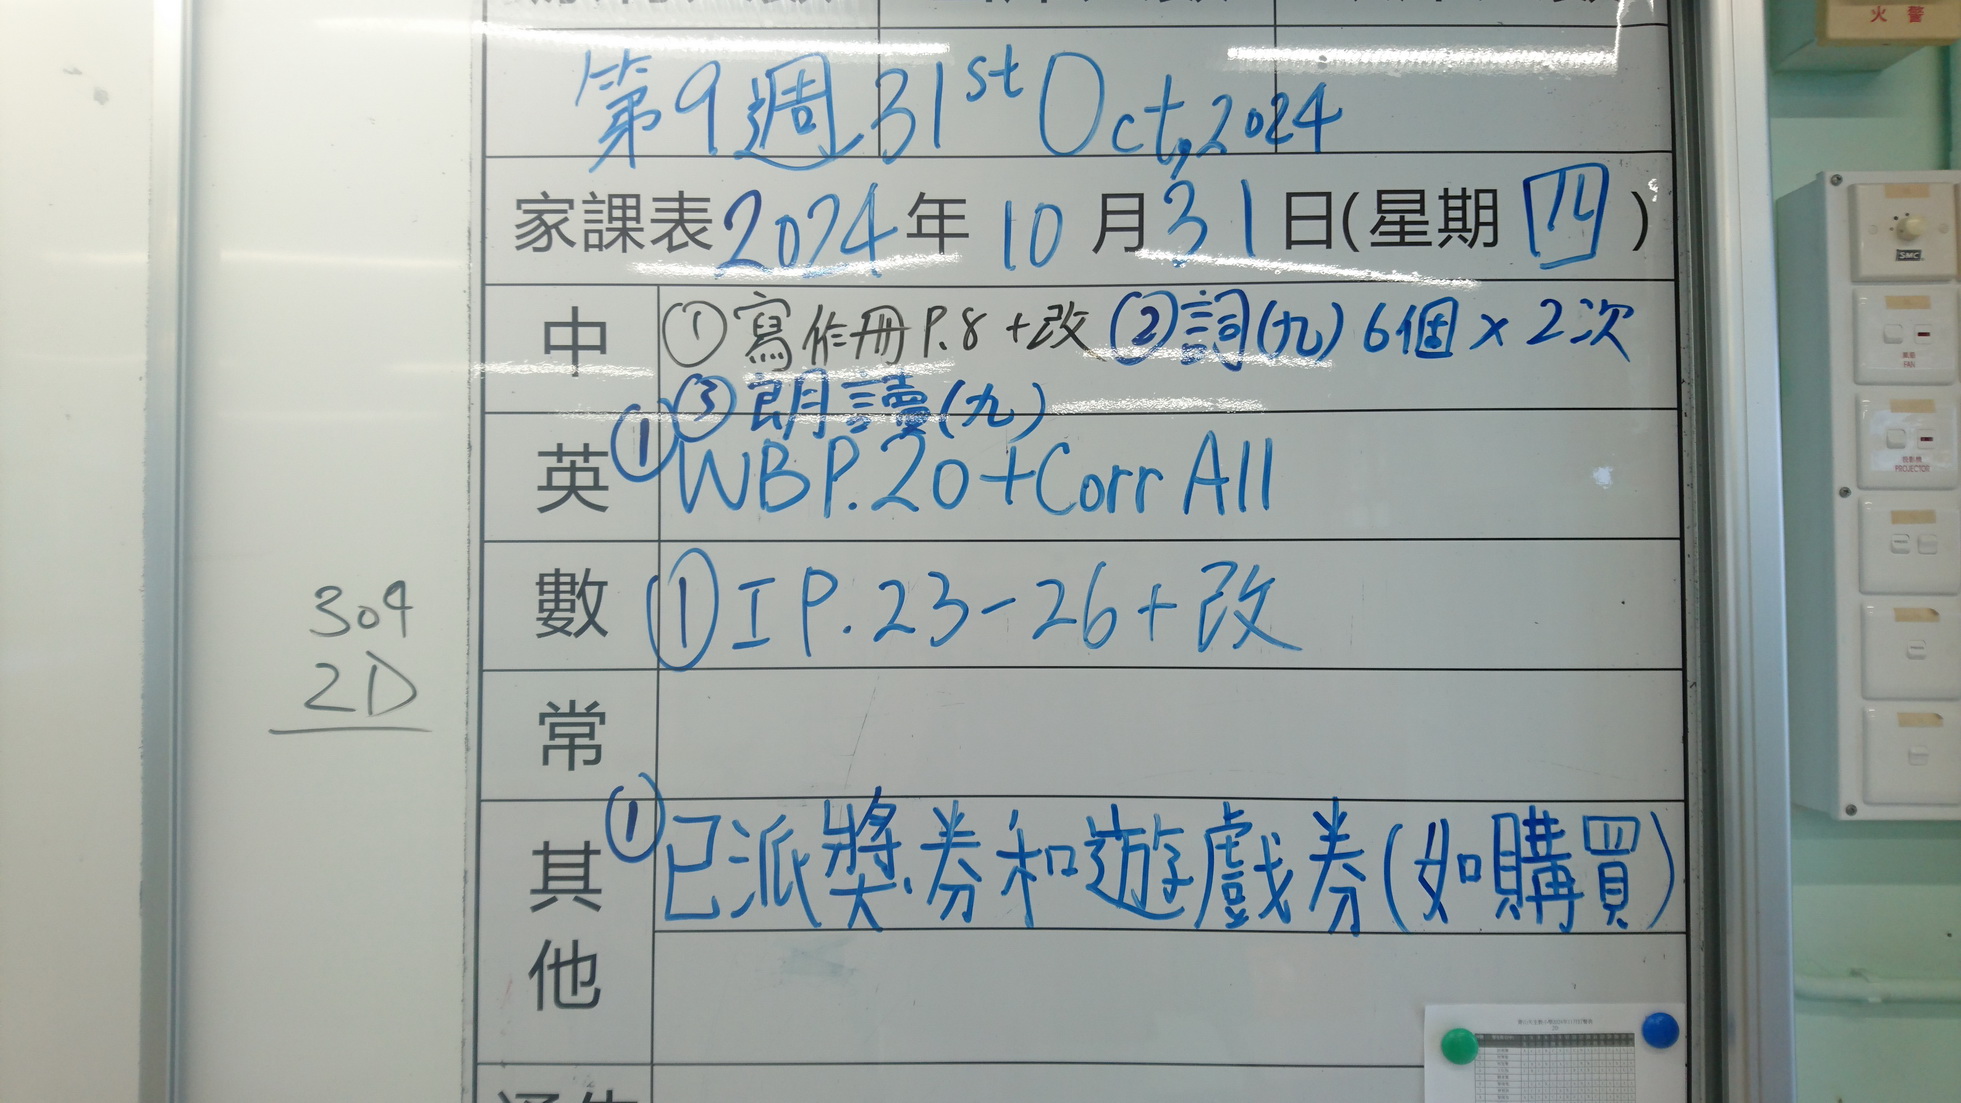 第9週 31st Oct, 2024
家課表 2024年 10月 31日(星期四)
中 ①寫作冊P.8+改 ②詞(九) 6個×2次
③朗讀(九)
英 ①WB P.20+Corr All
數 ①I P.23-26+改
常
其他 ①已派獎券和遊戲券(如購買)
309
2D
火警
SMC
FAN
PROJECTOR